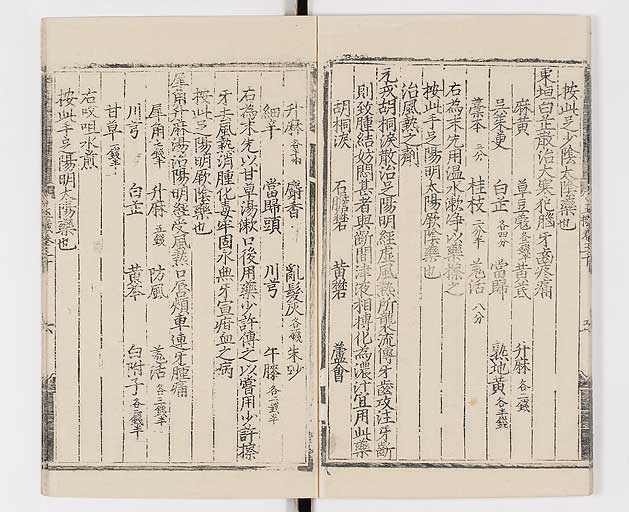 按此足少陰太陰藥也
東垣白芷散治大寒犯腦牙齒疼痛
麻黃 草豆蔻 各一錢半 黃芪 升麻 各二錢
吳茱萸 白芷 各四分 當歸 熟地黃 各五錢
藁本 三分 桂枝 二分半 羌活 八分
右為末先用溫水漱淨以藥擦之
按此手足陽明太陽厥陰藥也
治風熱之劑
元戎胡桐淚散治足陽明經虛風熱所襲流傳牙齒攻注牙齗
則致腫結妨悶甚者與齗間津液相搏化為濃汁宜用此藥
胡桐淚 石膽礬 黃礬 蘆會
升麻 各半兩 麝香 亂髮灰 各錢 朱砂
細辛 當歸頭 川芎 牛膝 各二錢半
右為末先以甘草湯漱口後用藥少許傅之以嘗用少許擦
牙去風熱消腫化毒牢固永無牙宣疳血之病
按此足陽明厥陰藥也
犀角升麻湯治陽明經受風熱口唇頰車連牙腫痛
犀角 七錢半 升麻 五錢 防風 羌活 各三錢半
川芎 白芷 黃芩 白附子 各二錢半
甘草 一錢半
右㕮咀水煎
按此手足陽明太陽藥也